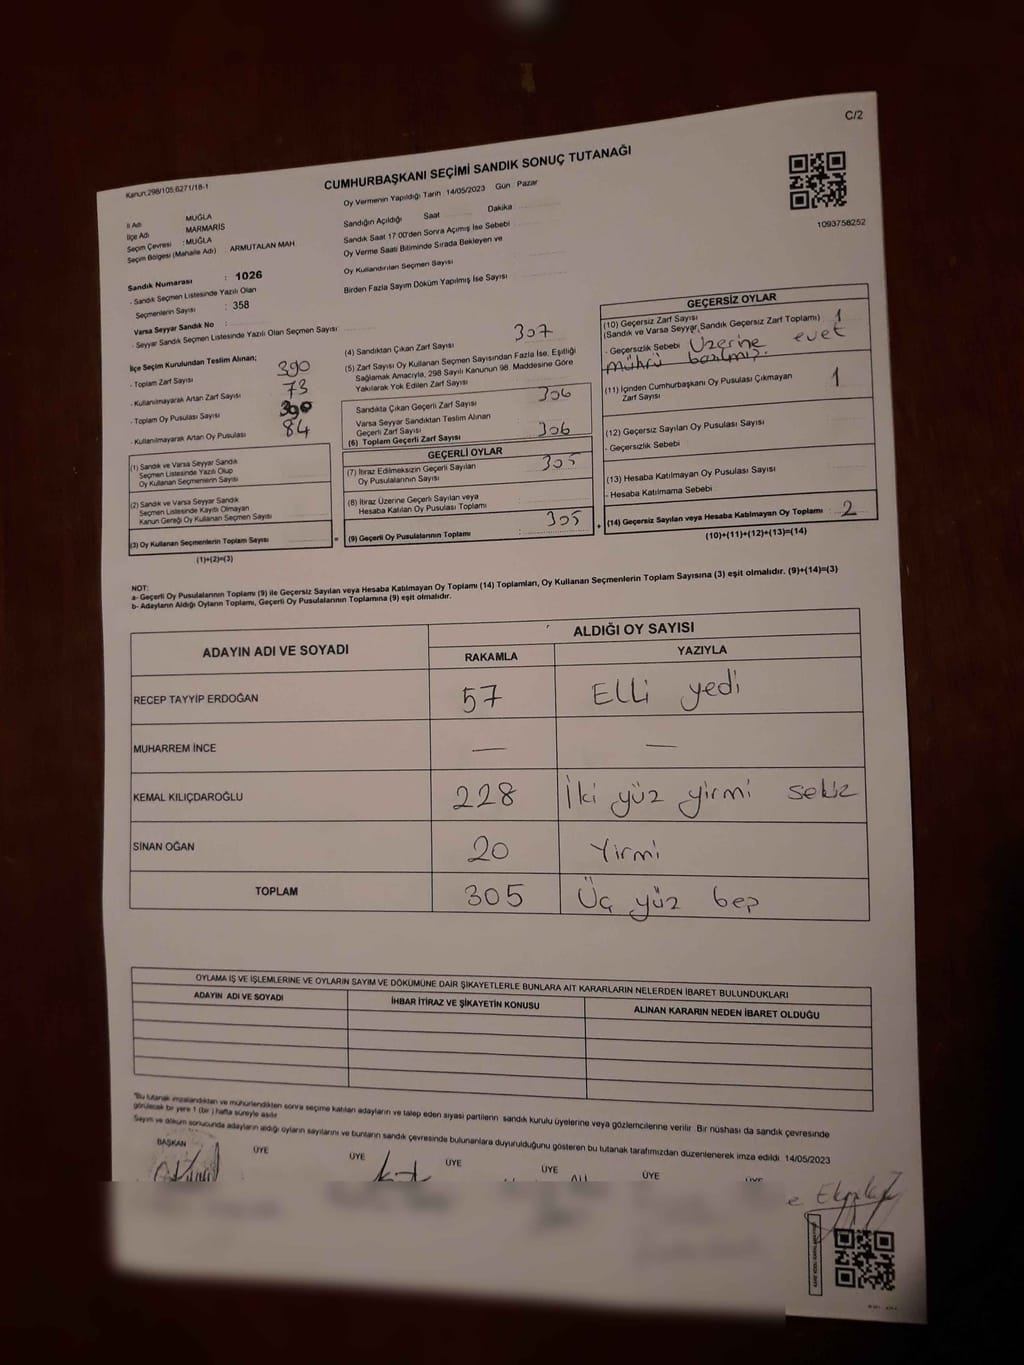 C/2
Kanun:298/105,6271/18-1
CUMHURBAŞKANI SEÇİMİ SANDIK SONUÇ TUTANAĞI
1093758252
İl Adı MUĞLA
İlçe Adı MARMARİS
Seçim Çevresi :MUĞLA
Seçim Bölgesi (Mahalle Adı) : ARMUTALAN MAH
Sandık Numarası : 1026
- Sandık Seçmen Listesinde Yazılı Olan
Seçmenlerin Sayısı : 358
Varsa Seyyar Sandık No :
- Seyyar Sandık Seçmen Listesinde Yazılı Olan Seçmen Sayısı
Oy Vermenin Yapıldığı Tarih 14/05/2023 Gün Pazar
Sandığın Açıldığı Saat Dakika
Sandık Saat 17 00'den Sonra Açımış İse Sebebi
Oy Verme Saati Bitiminde Sırada Bekleyen ve
Oy Kullandırılan Seçmen Sayısı
Birden Fazla Sayım Döküm Yapılmış İse Sayısı
İlçe Seçim Kurulundan Teslim Alınan;
- Toplam Zarf Sayısı 390
- Kullanılmayarak Artan Zarf Sayısı 73
- Toplam Oy Pusulası Sayısı 390
- Kullanılmayarak Artan Oy Pusulası 84
(1) Sandık ve Varsa Seyyar Sandık
Seçmen Listesinde Yazılı Olup
Oy Kullanan Seçmenlerin Sayısı
(2) Sandık ve Varsa Seyyar Sandık
Seçmen Listesinde Kayıtlı Olmayan
Kanun Gereği Oy Kullanan Seçmen Sayısı
(3) Oy Kullanan Seçmenlerin Toplam Sayısı
(1)+(2)=(3)
(4) Sandıktan Çıkan Zarf Sayısı 307
(5) Zarf Sayısı Oy Kullanan Seçmen Sayısından Fazla İse, Eşitliği
Sağlamak Amacıyla, 298 Sayılı Kanunun 98. Maddesine Göre
Yakılarak Yok Edilen Zarf Sayısı
Sandıkta Çıkan Geçerli Zarf Sayısı 306
Varsa Seyyar Sandıktan Teslim Alınan
Geçerli Zarf Sayısı
(6) Toplam Geçerli Zarf Sayısı 306
GEÇERLİ OYLAR
(7) İtiraz Edilmeksizin Geçerli Sayılan
Oy Pusulalarının Sayısı 305
(8) İtiraz Üzerine Geçerli Sayılan veya
Hesaba Katılan Oy Pusulası Toplamı
= (9) Geçerli Oy Pusulalarının Toplamı 305 +
GEÇERSİZ OYLAR
(10) Geçersiz Zarf Sayısı
(Sandık ve Varsa Seyyar Sandık Geçersiz Zarf Toplamı) 1
- Geçersizlik Sebebi Üzerine evet
mührü basılmış.
(11) İçinden Cumhurbaşkanı Oy Pusulası Çıkmayan
Zarf Sayısı 1
(12) Geçersiz Sayılan Oy Pusulası Sayısı
- Geçersizlik Sebebi
(13) Hesaba Katılmayan Oy Pusulası Sayısı
- Hesaba Katılmama Sebebi
(14) Geçersiz Sayılan veya Hesaba Katılmayan Oy Toplamı : 2
(10)+(11)+(12)+(13)=(14)
NOT:
a- Geçerli Oy Pusulalarının Toplamı (9) ile Geçersiz Sayılan veya Hesaba Katılmayan Oy Toplamı (14) Toplamları, Oy Kullanan Seçmenlerin Toplam Sayısına (3) eşit olmalıdır. (9)+(14)=(3)
b- Adayların Aldığı Oyların Toplamı, Geçerli Oy Pusulalarının Toplamına (9) eşit olmalıdır.
ADAYIN ADI VE SOYADI ALDIĞI OY SAYISI
RAKAMLA YAZIYLA
RECEP TAYYİP ERDOĞAN 57 Elli yedi
MUHARREM İNCE — —
KEMAL KILIÇDAROĞLU 228 İki yüz yirmi sekiz
SİNAN OĞAN 20 Yirmi
TOPLAM 305 Üç yüz beş
OYLAMA İŞ VE İŞLEMLERİNE VE OYLARIN SAYIM VE DÖKÜMÜNE DAİR ŞİKAYETLERLE BUNLARA AİT KARARLARIN NELERDEN İBARET BULUNDUKLARI
ADAYIN ADI VE SOYADI İHBAR İTİRAZ VE ŞİKAYETİN KONUSU ALINAN KARARIN NEDEN İBARET OLDUĞU
*Bu tutanak imzalandıktan ve mühürlendikten sonra seçime katılan adayların ve talep eden siyasi partilerin sandık kurulu üyelerine veya gözlemcilerine verilir. Bir nüshası da sandık çevresinde
görülecek bir yere 1 (bir) hafta süreyle asılır
Sayım ve döküm sonucunda adayların aldığı oyların sayılarını ve bunların sandık çevresinde bulunanlara duyurulduğunu gösteren bu tutanak tarafımızdan düzenlenerek imza edildi 14/05/2023
BAŞKAN ÜYE ÜYE ÜYE ÜYE ÜYE